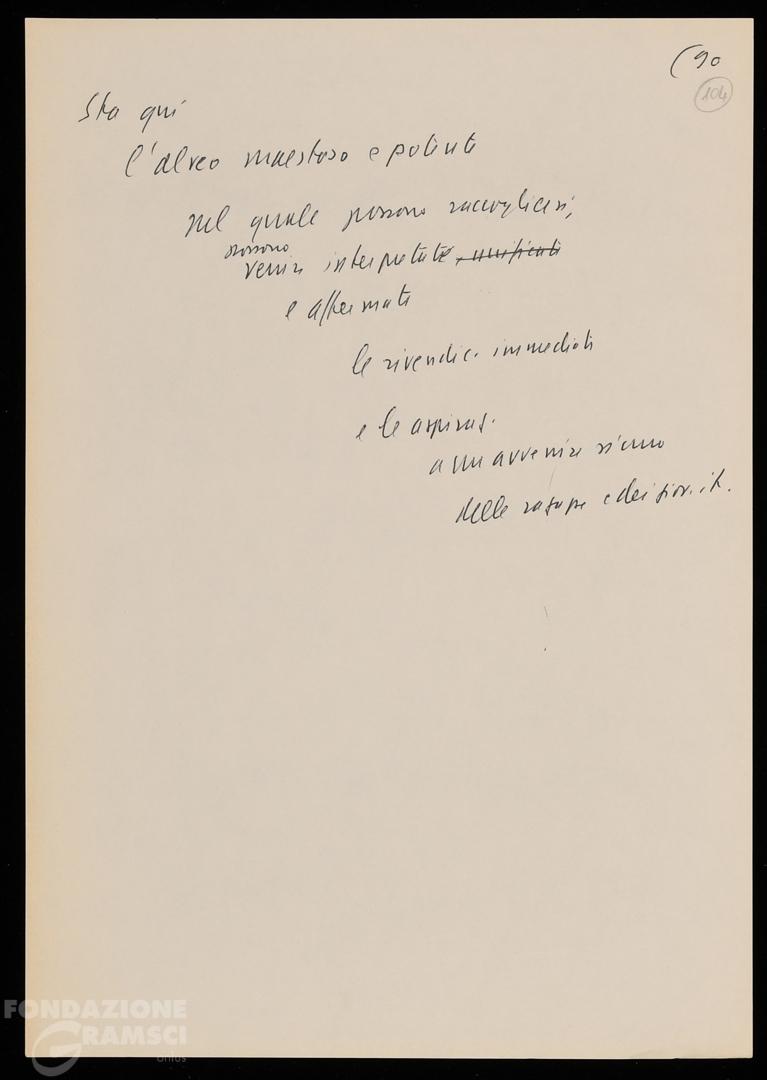 (90
104
Sta qui
l'alveo maestoso e potente
nel quale possono raccogliersi,
possono
venire interpretate, unificate
e affermate
le rivendic. immediate
e le aspiraz.
a un avvenire sicuro
delle ragazze e dei giov. it.
FONDAZIONE
GRAMSCI
onlus